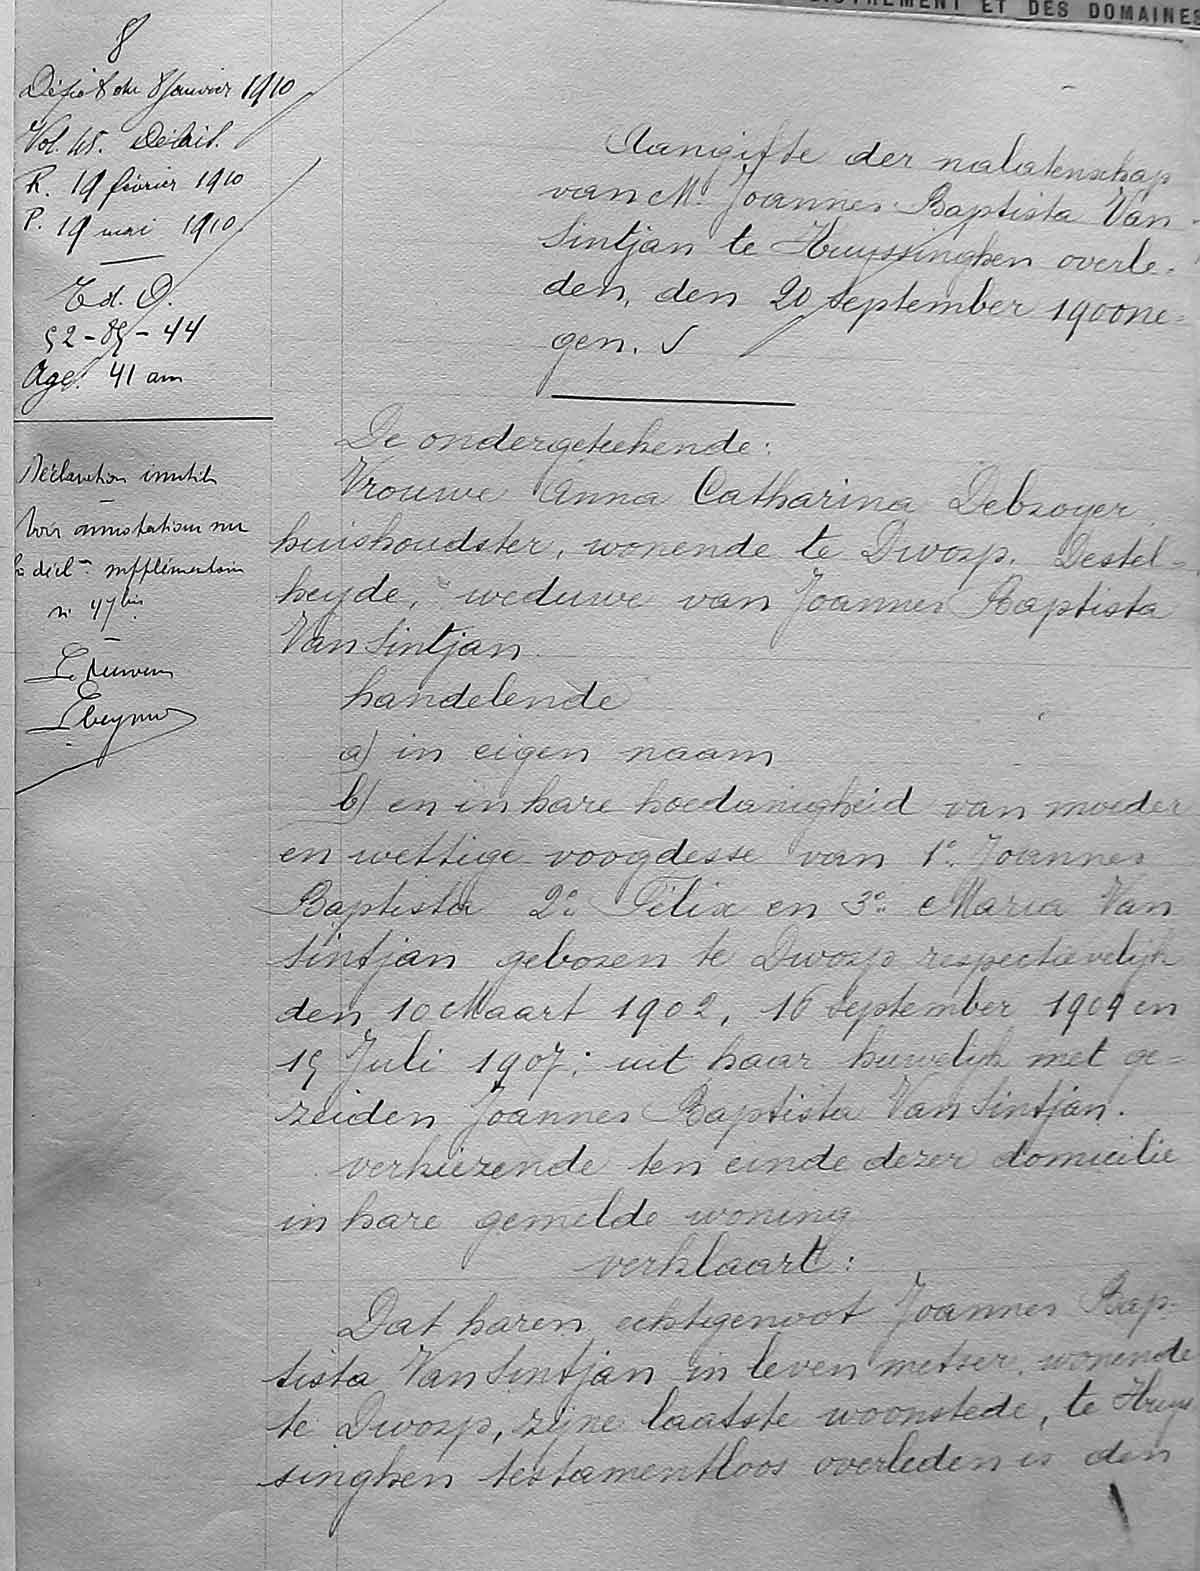 ET DES DOMAINES
8
Dépôt du 8 Janvier 1910
Vol. 45. Délai.
R. 19 février 1910
P. 19 mai 1910
Ed. D.
52-85-44
Age: 41 ans
Déclaration inutile
Voir annotations sur
la décl.on supplémentaire
n° 47 bis
Aangifte der nalatenschap
van Mr Joannes Baptista Van
Sintjan te Huyssinghen overle-
den, den 20 September 1900ne-
gen. √
De ondergeteekende:
Vrouwe Anna Catharina Debroyer
huishoudster, wonende te Dworp, Destel-
heyde, weduwe van Joannes Baptista
Van Sintjan
handelende
a) in eigen naam
b) en in hare hoedanigheid van moeder
en wettige voogdesse van 1° Joannes
Baptista 2° Félix en 3° Maria Van
Sintjan geboren te Dworp respectievelijk
den 10 Maart 1902, 16 September 1904 en
15 Juli 1907; uit haar huwelijk met ge-
zeiden Joannes Baptista Van Sintjan.
verkiezende ten einde dezer domicilie
in hare gemelde woning
verklaart:
Dat haren echtgenoot Joannes Bap-
tista Van Sintjan in leven metser, wonende
te Dworp, zijne laatste woonstede, te Huys
singhen testamentloos overleden is den